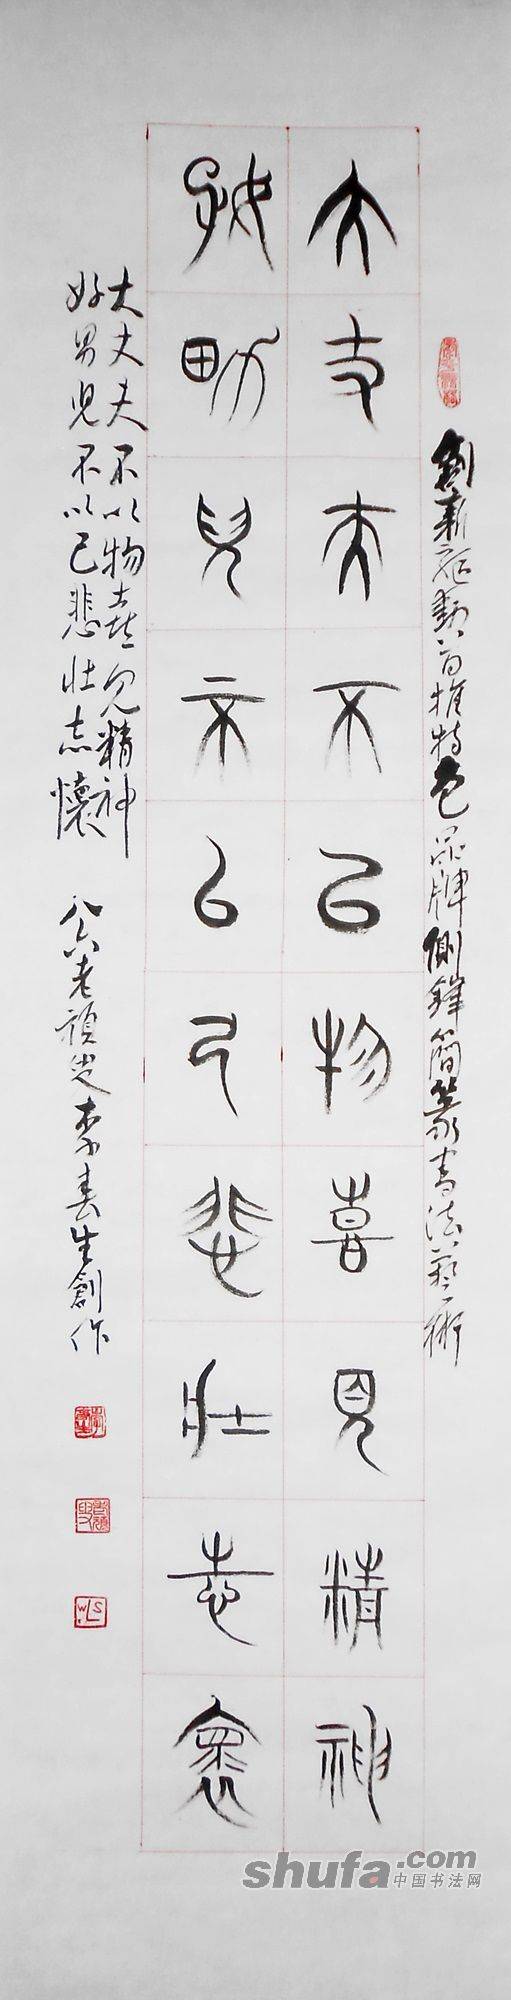 創新驅動首推特色品牌側鋒簡篆書法藝術
大丈夫不以物喜見精神
好男兒不以己悲壯志懷
大丈夫不以物喜見精神
好男兒不以己悲壯志懷
八六老頑童李春生創作
shufa.com
中国书法网